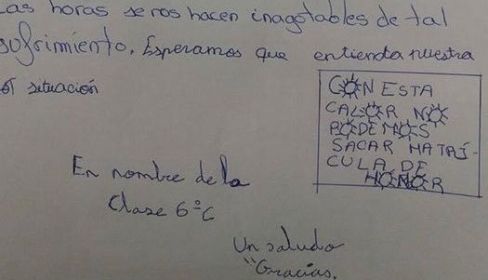 Las horas se nos hacen inagotables de tal
sufrimiento. Esperamos que entienda nuestra
situación
CON ESTA
CALOR NO
PODEMOS
SACAR MATRÍ-
CULA DE
HONOR
En nombre de la
Clase 6ºC
Un saludo
"Gracias.